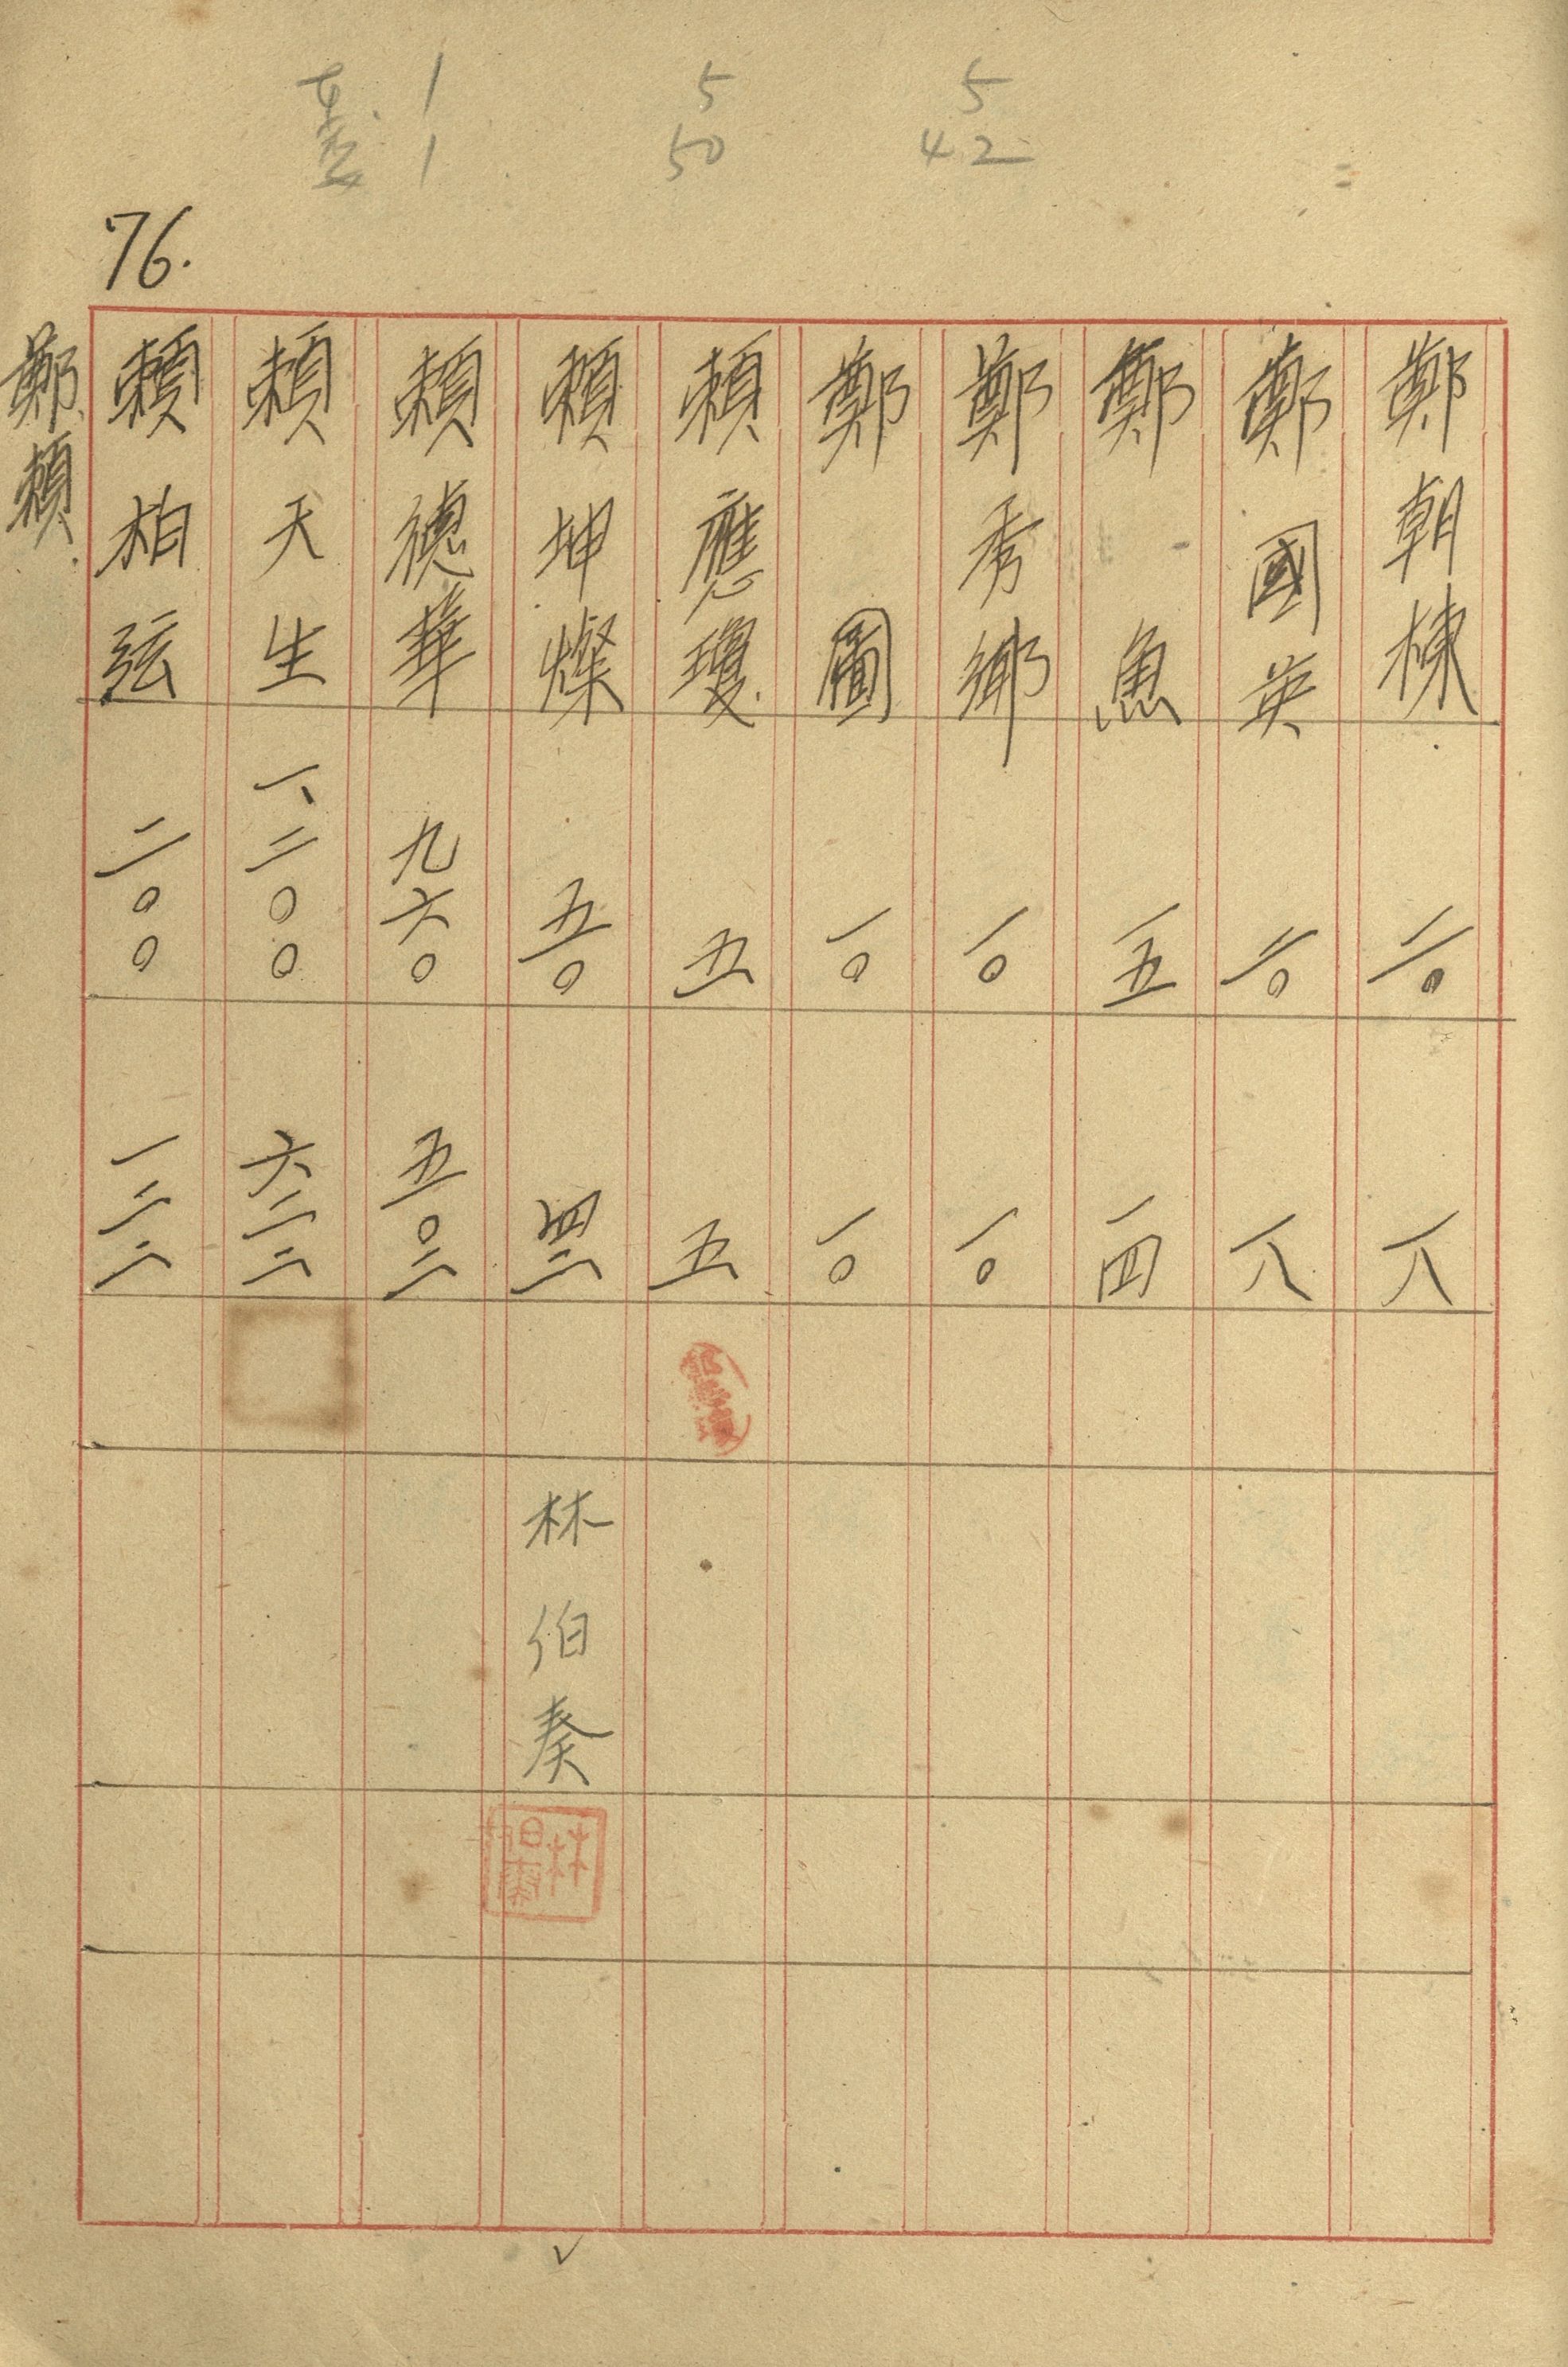 1 5 5
1 50 42
76.
鄭朝棟 二〇 一八
鄭國英 二〇 一八
鄭魚 一五 一四
鄭秀鄉 一〇 一〇
鄭圖 一〇 一〇
賴應瓊 五 五
賴坤燦 五〇 四二 林伯奏
林伯奏
賴德華 九六〇 五〇二
賴天生 一、二〇〇 六二二
賴柏弦 二〇〇 一二二
鄭、賴、